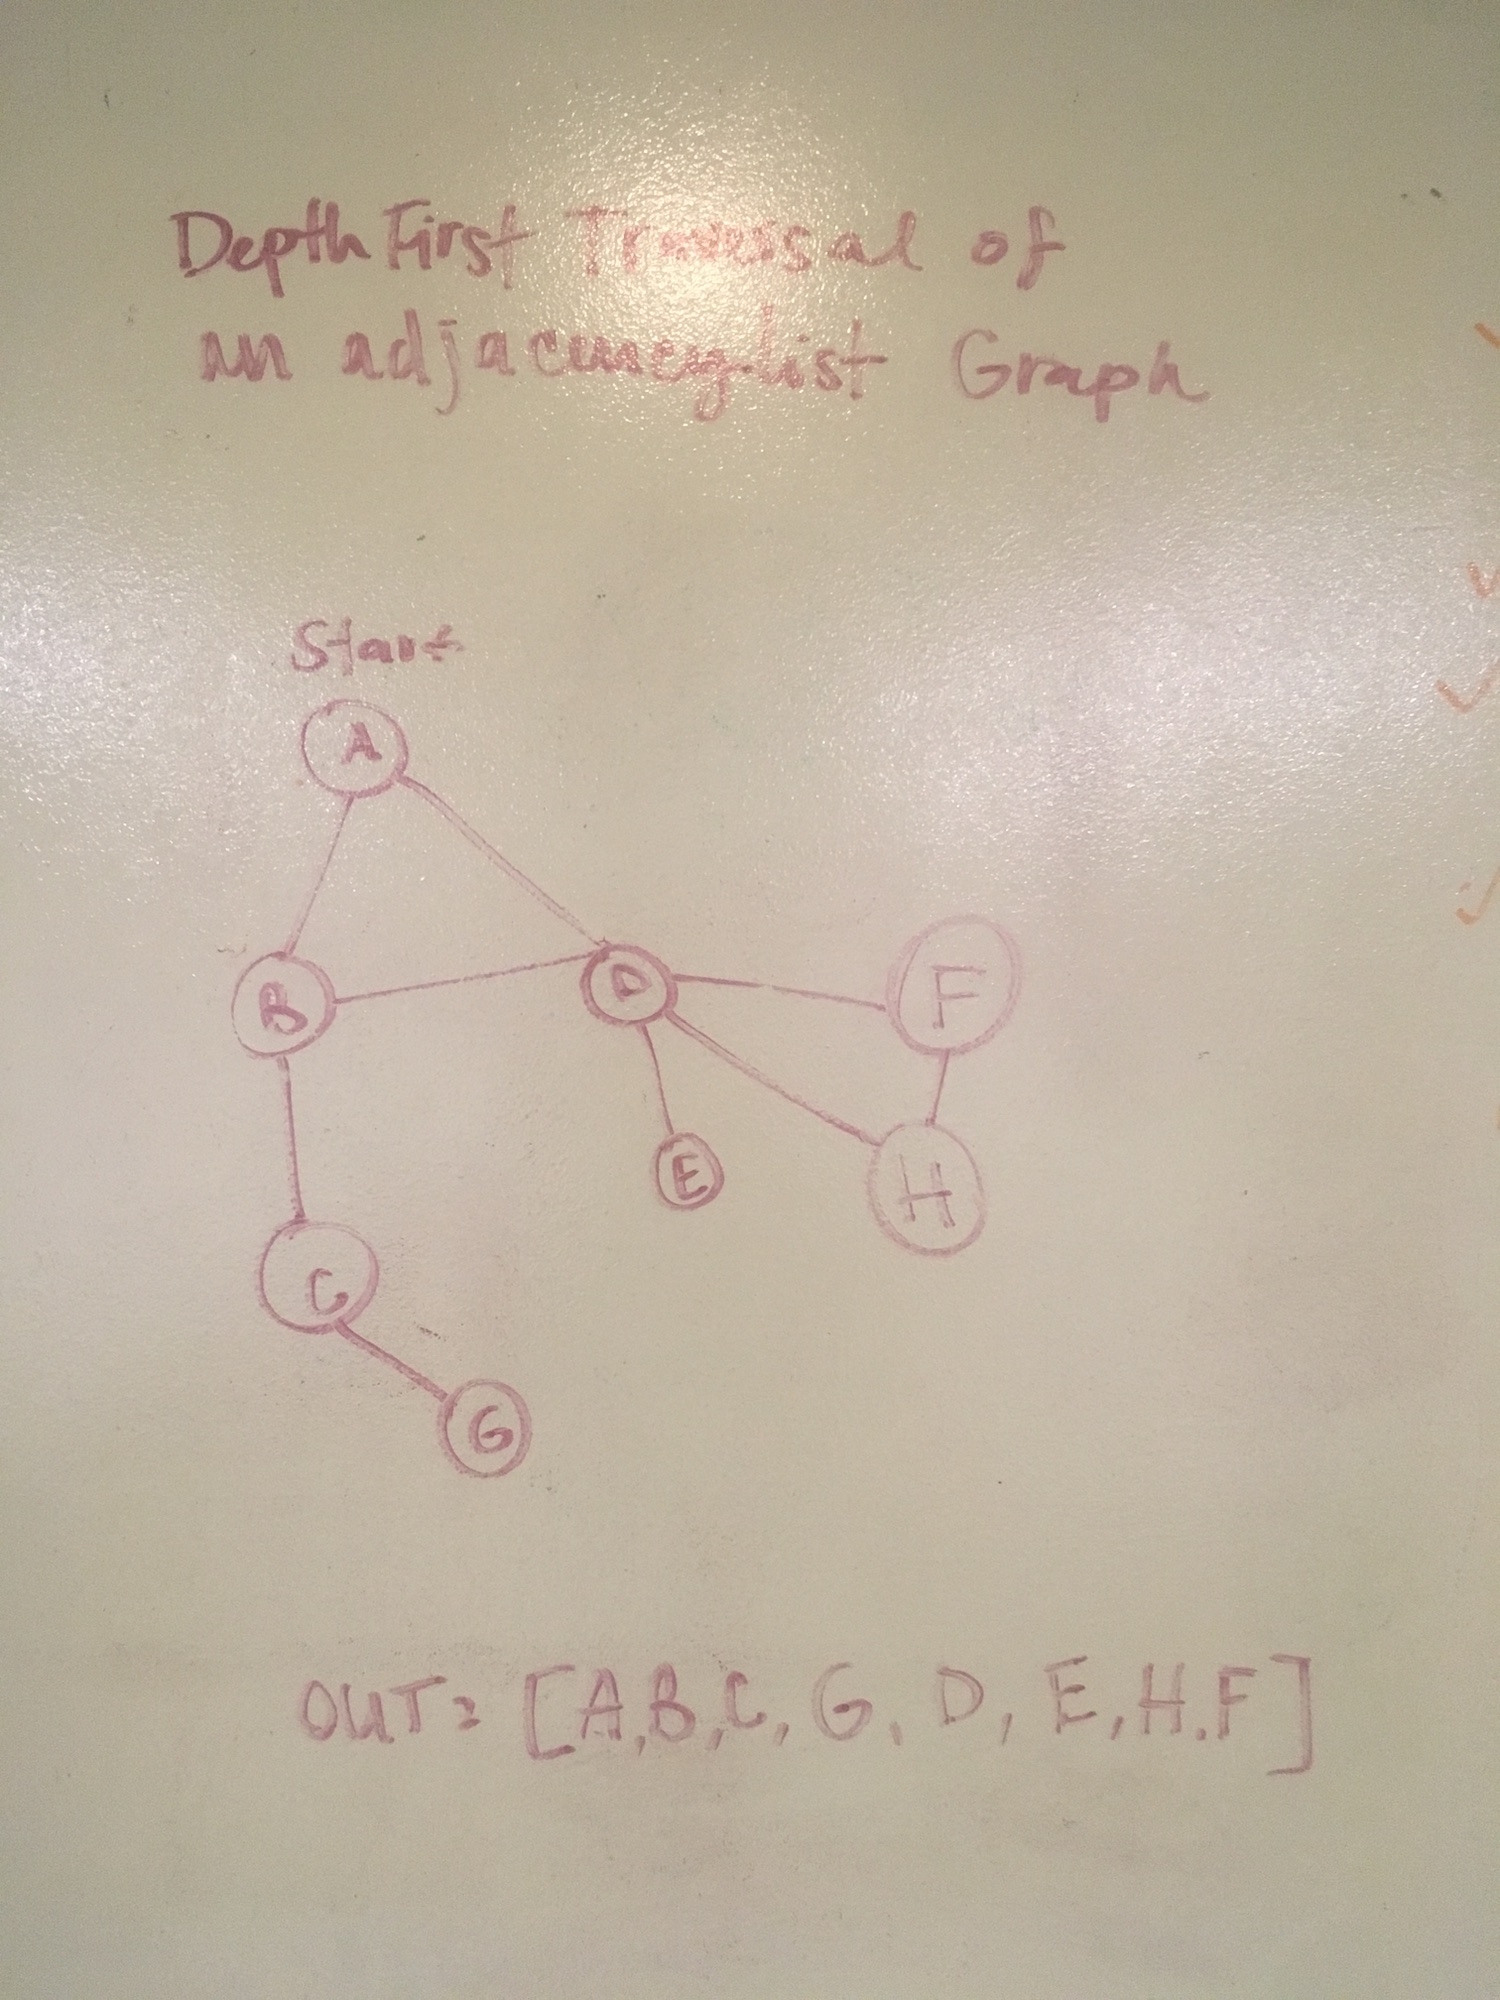 Depth First Traversal of
an adjacency list Graph
Start
A
B
D
F
E
H
C
G
OUT: [A,B,C, G, D, E,H.F]